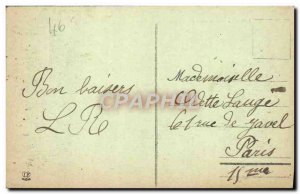 46
Bon baisers
L R
Mademoiselle
Odette Laugé
61 rue de Javel
Paris
15me
CPARAMA.COM